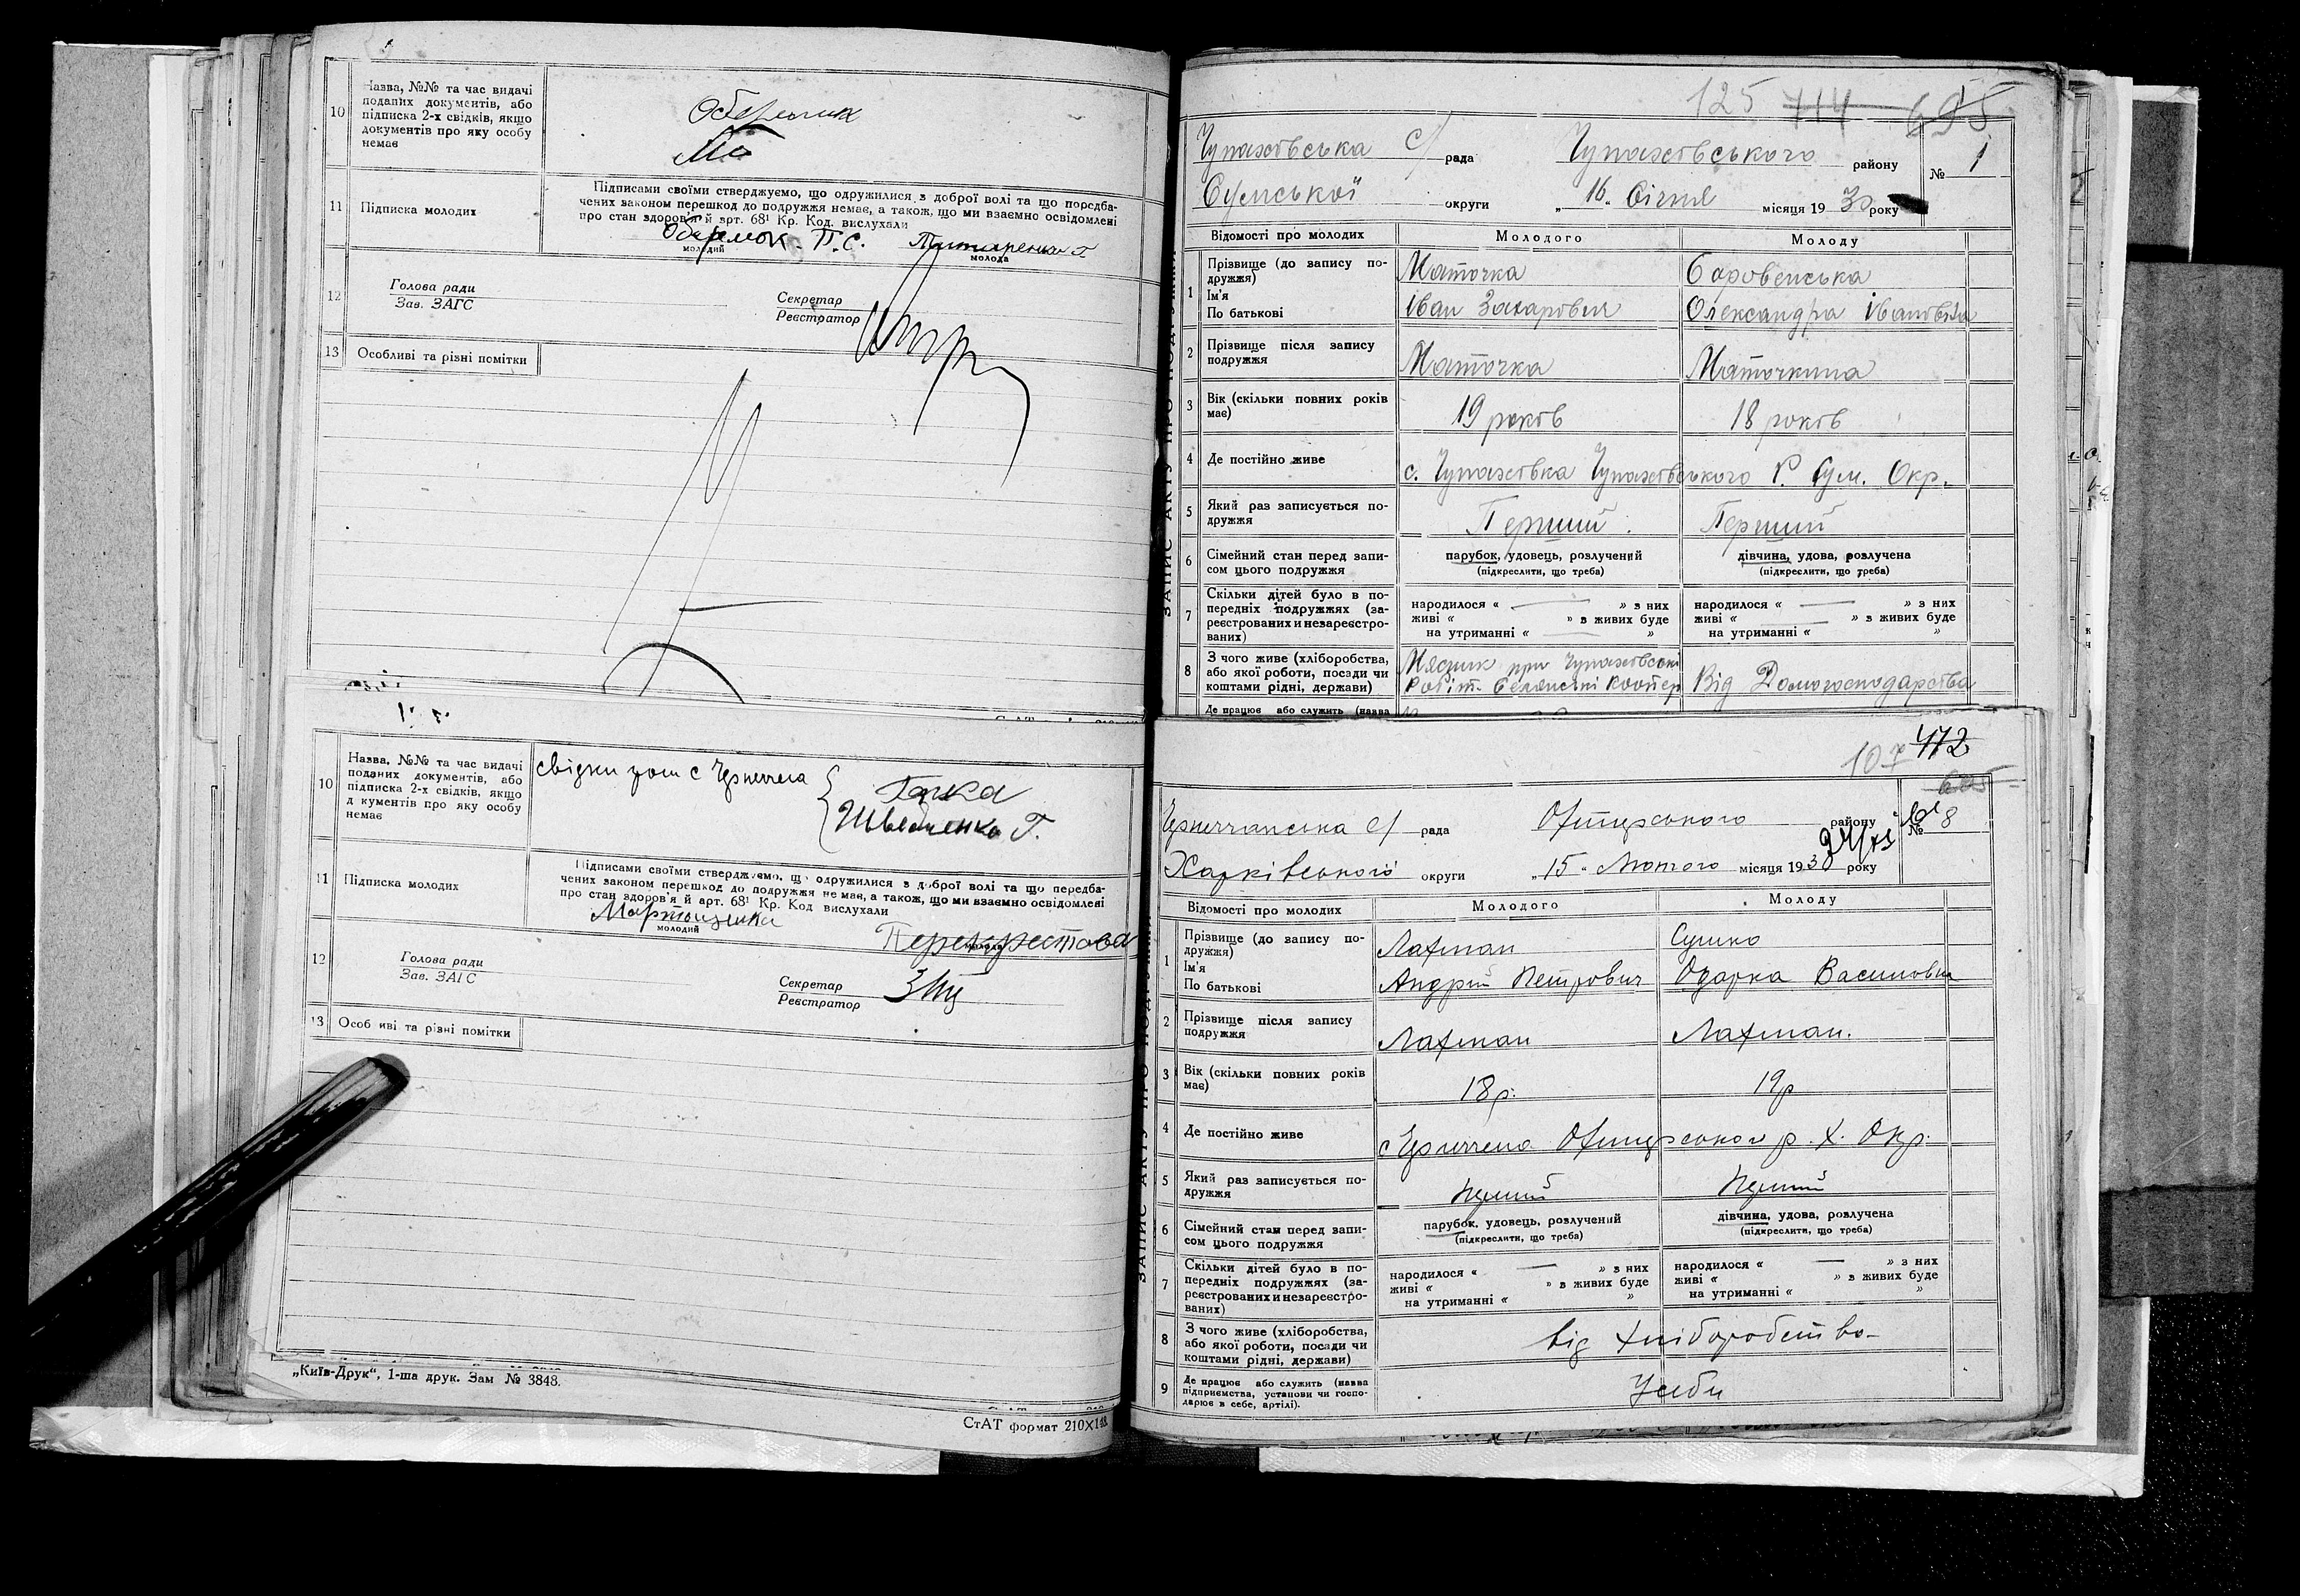 10
Назва, №№ та час видачі
поданих документів, або
підписка 2-х свідків, якщо
документів про яку особу
немає
11
Підписка молодих
Підписами своїми стверджуємо, що одружилися з доброї волі та що передба-
чених законом перешкод до подружжя немає, а також, що ми взаємно освідомлені
про стан здоров'я й арт. 68¹ Кр. Код. вислухали
П. С.
молодий
молода
12
Голова ради
Зав. ЗАГС
Секретар
Реєстратор
13 Особливі та різні помітки
10
Назва, №№ та час видачі
поданих документів, або
підписка 2-х свідків, якщо
д кументів про яку особу
немає
свідки
Гапка
Г.
11
Підписка молодих
Підписами своїми стверджуємо, що одружилися з доброї волі та що передба-
чених законом перешкод до подружжя немає, а також, що ми взаємно освідомлені
про стан здоров'я й арт. 68¹ Кр. Код вислухали
молодий
Перехрестова
12
Голова ради
Зав. ЗАГС
Секретар
Реєстратор
13 Особ иві та різні помітки
„Київ-Друк“, 1-ша друк. Зам № 3848.
СтАТ формат 210×148
125 714 695
Чупахівська с/ рада Чупахівського району № 1
Сумської округи „16. Січня місяця 1930 року
Відомості про молодих Молодого Молоду
1
Прізвище (до запису по-
дружжя)
Маточка Боровенська
Ім'я
По батькові
Іван Захарович Олександра Івановна
2
Прізвище після запису
подружжя
Маточка Маточкина
3
Вік (скільки повних років
має)
19 років 18 років
4 Де постійно живе
с. Чупахівка Чупахівського Р. Сум. Окр.
5
Який раз записується по-
дружжя
Перший Перший
6
Сімейний стан перед запи-
сом цього подружжя
парубок, удовець, розлучений
(підкреслити, що треба)
дівчина, удова, розлучена
(підкреслити, що треба)
7
Скільки дітей було в по-
передніх подружжях (за-
реєстрованих и незареєстро-
ваних)
народилося « » з них
живі « » в живих буде
на утриманні « »
народилося « » з них
живі « » в живих буде
на утриманні « »
8
З чого живе (хліборобства,
або якої роботи, посади чи
коштами рідні, держави)
Мясник при
Від Домогосподарства
Де працює або служить (назва
107 472
рада Охтирського району № 8
Харківського округи „15“ Лютого місяця 1930 року
Відомості про молодих Молодого Молоду
1
Прізвище (до запису по-
дружжя)
Лахман Сушко
Ім'я
По батькові
Андрій Петрович Одарка Василовна
2
Прізвище після запису
подружжя
Лахман Лахман.
3
Вік (скільки повних років
має)
18 р. 19 р
4 Де постійно живе
с Охтирського р. Х. Окр.
5
Який раз записується по-
дружжя
6
Сімейний стан перед запи-
сом цього подружжя
парубок, удовець, розлучений
(підкреслити, що треба)
дівчина, удова, розлучена
(підкреслити, що треба)
7
Скільки дітей було в по-
передніх подружжях (за-
реєстрованих и незареєстро-
ваних)
народилося « » з них
живі « » в живих буде
на утриманні « »
народилося « » з них
живі « » в живих буде
на утриманні « »
8
З чого живе (хліборобства,
або якої роботи, посади чи
коштами рідні, держави)
від хліборобство
9
Де працює або служить (назва
підприємства, установи чи госпо-
дарює в себе, артілі).
У себи